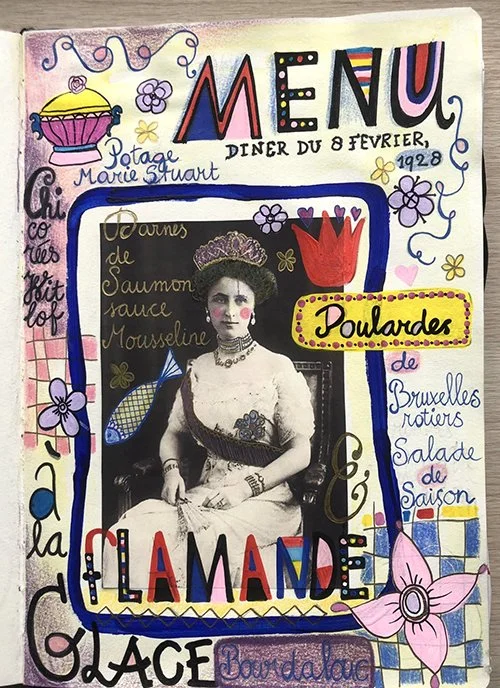 MENU
DINER DU 8 FEVRIER,
1928
Potage
Marie Stuart
Darnes
de
Saumon
sauce
Mousseline
Poulardes
de
Bruxelles
rotiers
Salade
de
Saison
&
Chi
co
rées
Wit
lof
à
la
FLAMANDE
GLACE
Bourdalouc